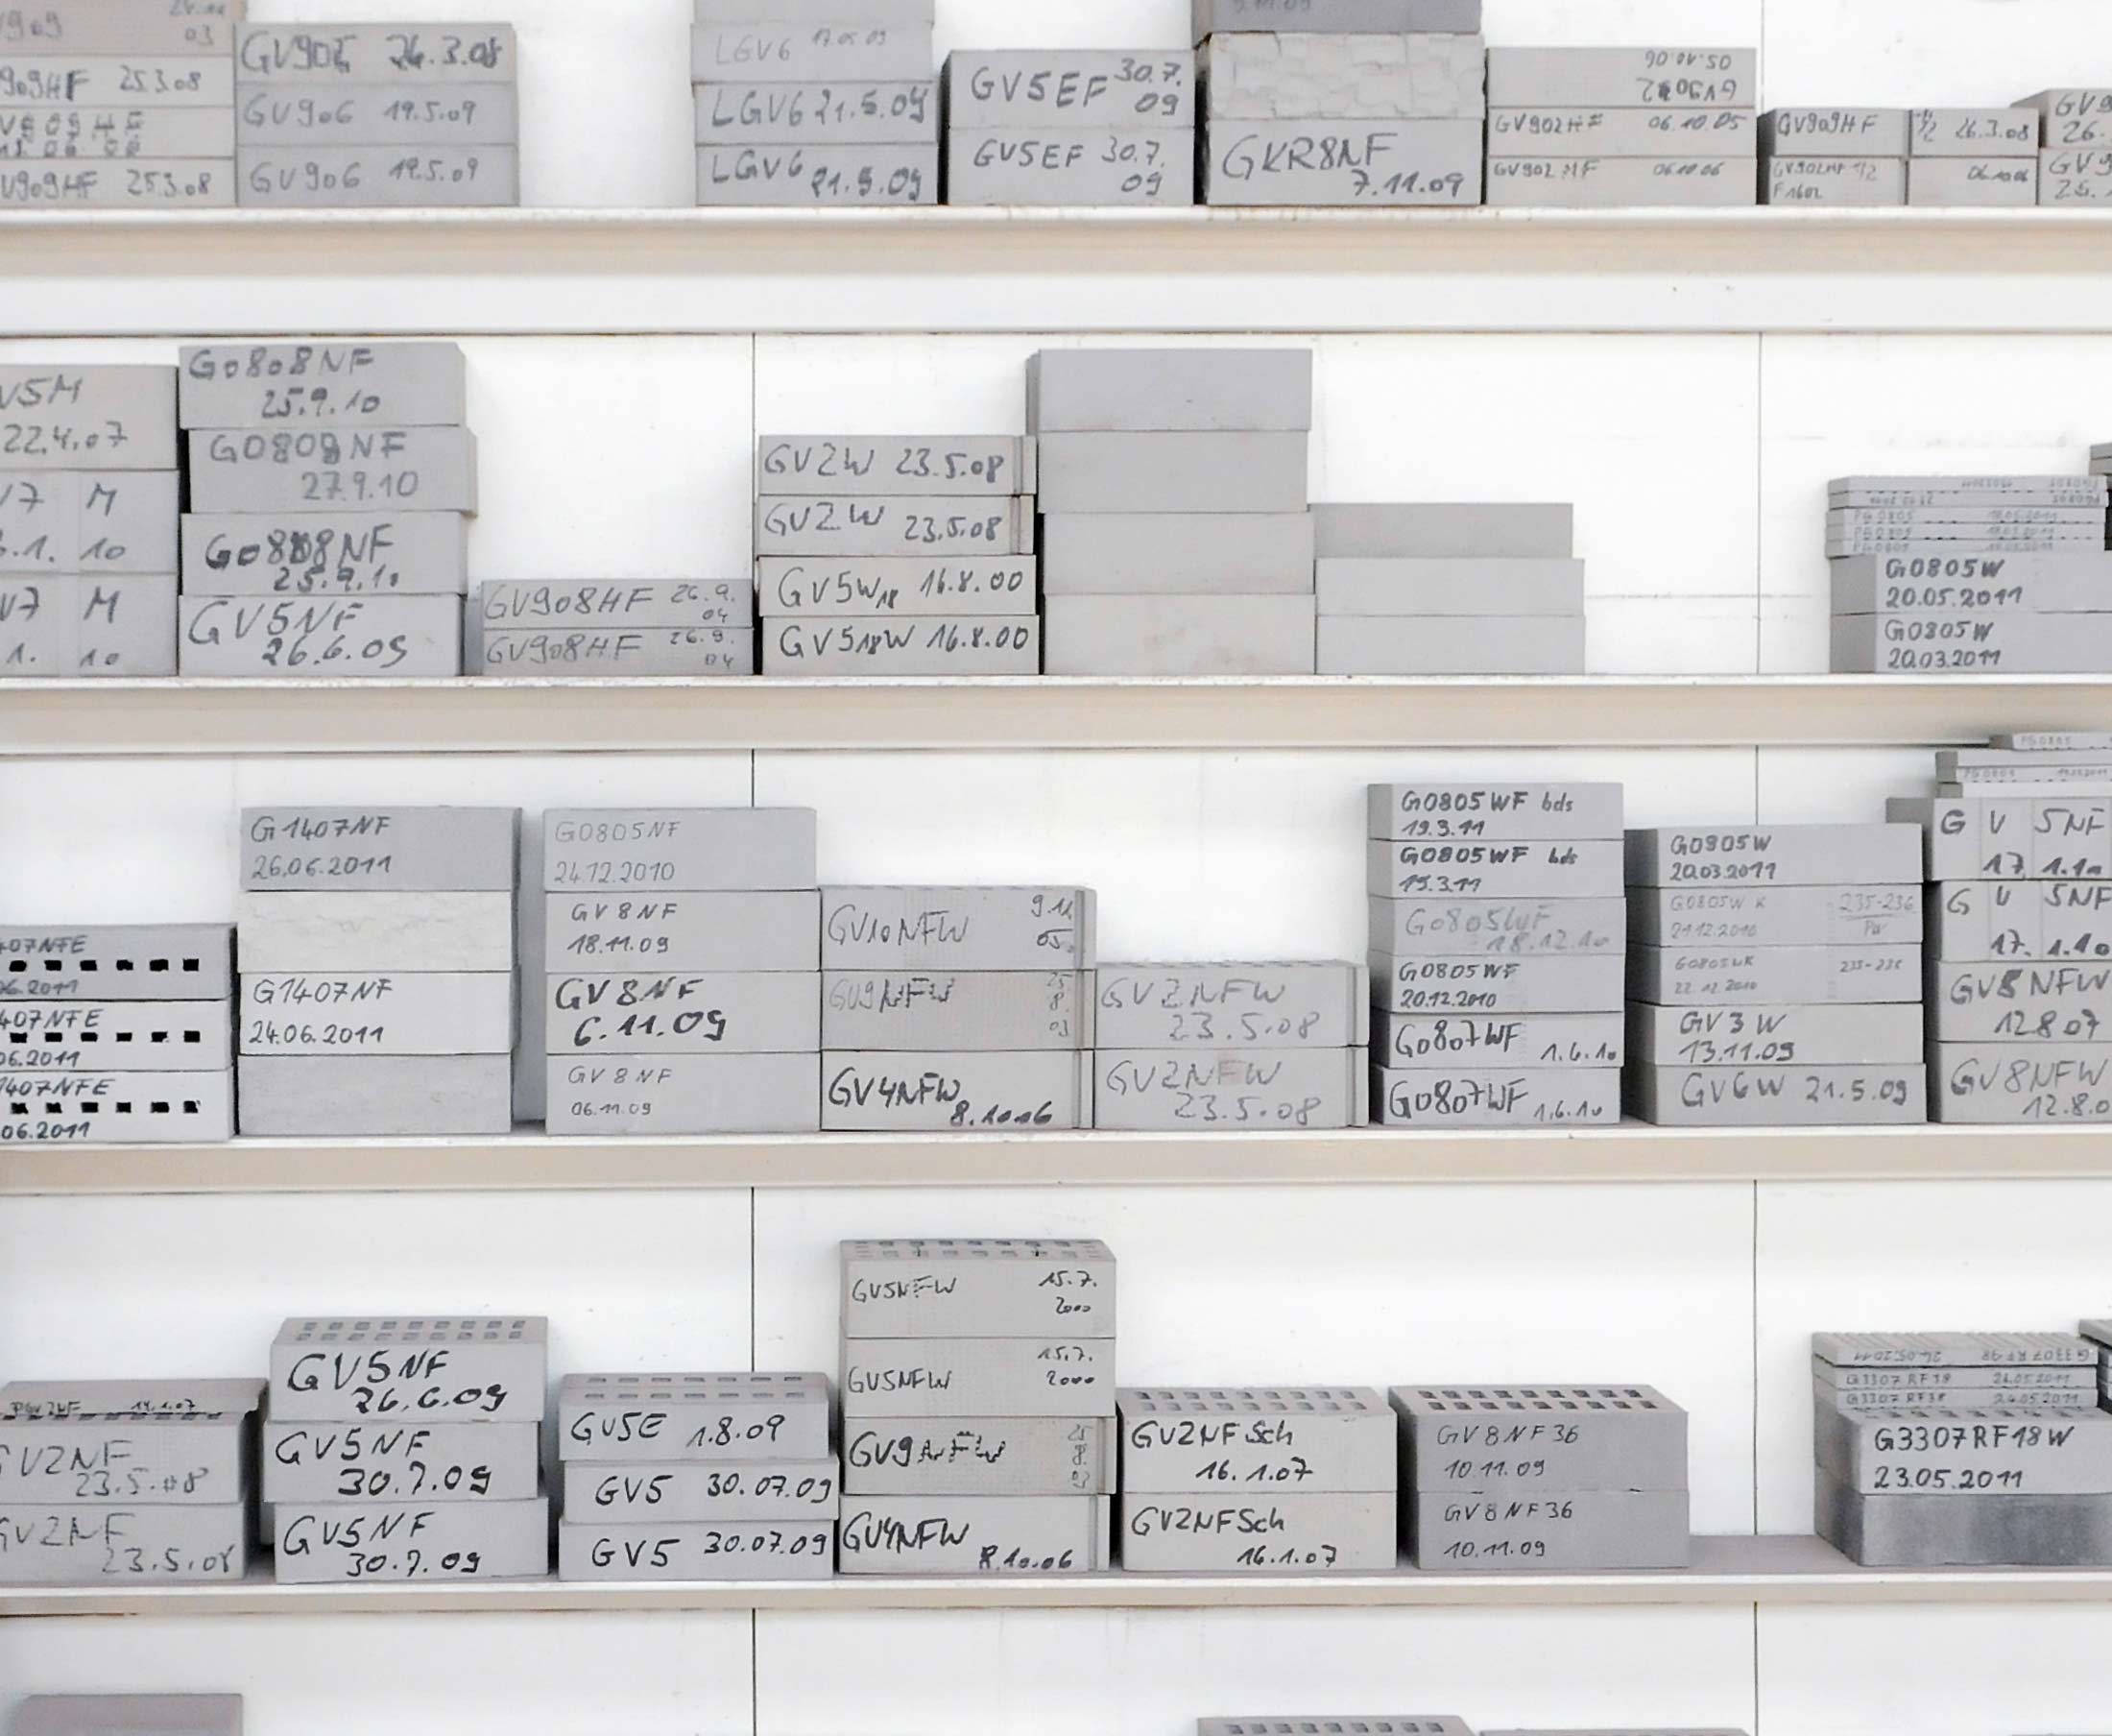 GV906 19.5.09
GV906 19.5.09
909HF 25.3.08
V909HF 25.3.08
LGV6
LGV6 21.5.09
LGV6 21.5.09
GV5EF 30.7.
09
GV5EF 30.7.
09
GKR8NF
7.11.09
GV902HF 06.10.05
GV902HF 06.10.06
GV909HF 1/2 26.3.08
GV902HF 1/2
V5M
22.4.07
V7 M
.1. 10
V7 M
1. 10
G0808NF
25.9.10
G0808NF
27.9.10
G0808NF
25.9.10
GV5NF
26.6.09
GV908HF 26.9.
04
GV908HF 26.9.
04
GV2W 23.5.08
GV2W 23.5.08
GV5W18 16.8.00
GV518W 16.8.00
G0805W
20.05.2011
G0805W
20.03.2011
407NFE
06.2011
407NFE
06.2011
1407NFE
06.2011
G1407NF
26.06.2011
G1407NF
24.06.2011
G0805NF
24.12.2010
GV8NF
18.11.09
GV8NF
6.11.09
GV8NF
06.11.09
GV10NFW 9.11.
05.
GV9NFW 25
8.
03
GV4NFW
8.10.06
GV2NFW
23.5.08
GV2NFW
23.5.08
G0805WF bds
19.3.11
G0805WF bds
19.3.11
G0805WF
18.12.10
G0805WF
20.12.2010
G0807WF 1.6.10
G0807WF 1.6.10
G0805W
20.03.2011
G0805W K 235-236
21.12.2010
G0805WK
22.12.2010
GV3W
13.11.09
GV6W 21.5.09
G V 5NF
17. 1.10
G V 5NF
17. 1.10
GV8NFW
12.8.07
GV8NFW
12.8.0
GV2NF
23.5.08
GV2NF
23.5.08
GV5NF
26.6.09
GV5NF
30.7.09
GV5NF
30.7.09
GV5E 1.8.09
GV5 30.07.09
GV5 30.07.09
GV5NFW 15.7.
2000
GV5NFW 15.7.
2000
GV9NFW 25
8.
03
GV4NFW
8.10.06
GV2NFSch
16.1.07
GV2NFSch
16.1.07
GV8NF36
10.11.09
GV8NF36
10.11.09
G3307RF18 24.05.2011
G3307RF18 24.05.2011
G3307RF18W
23.05.2011